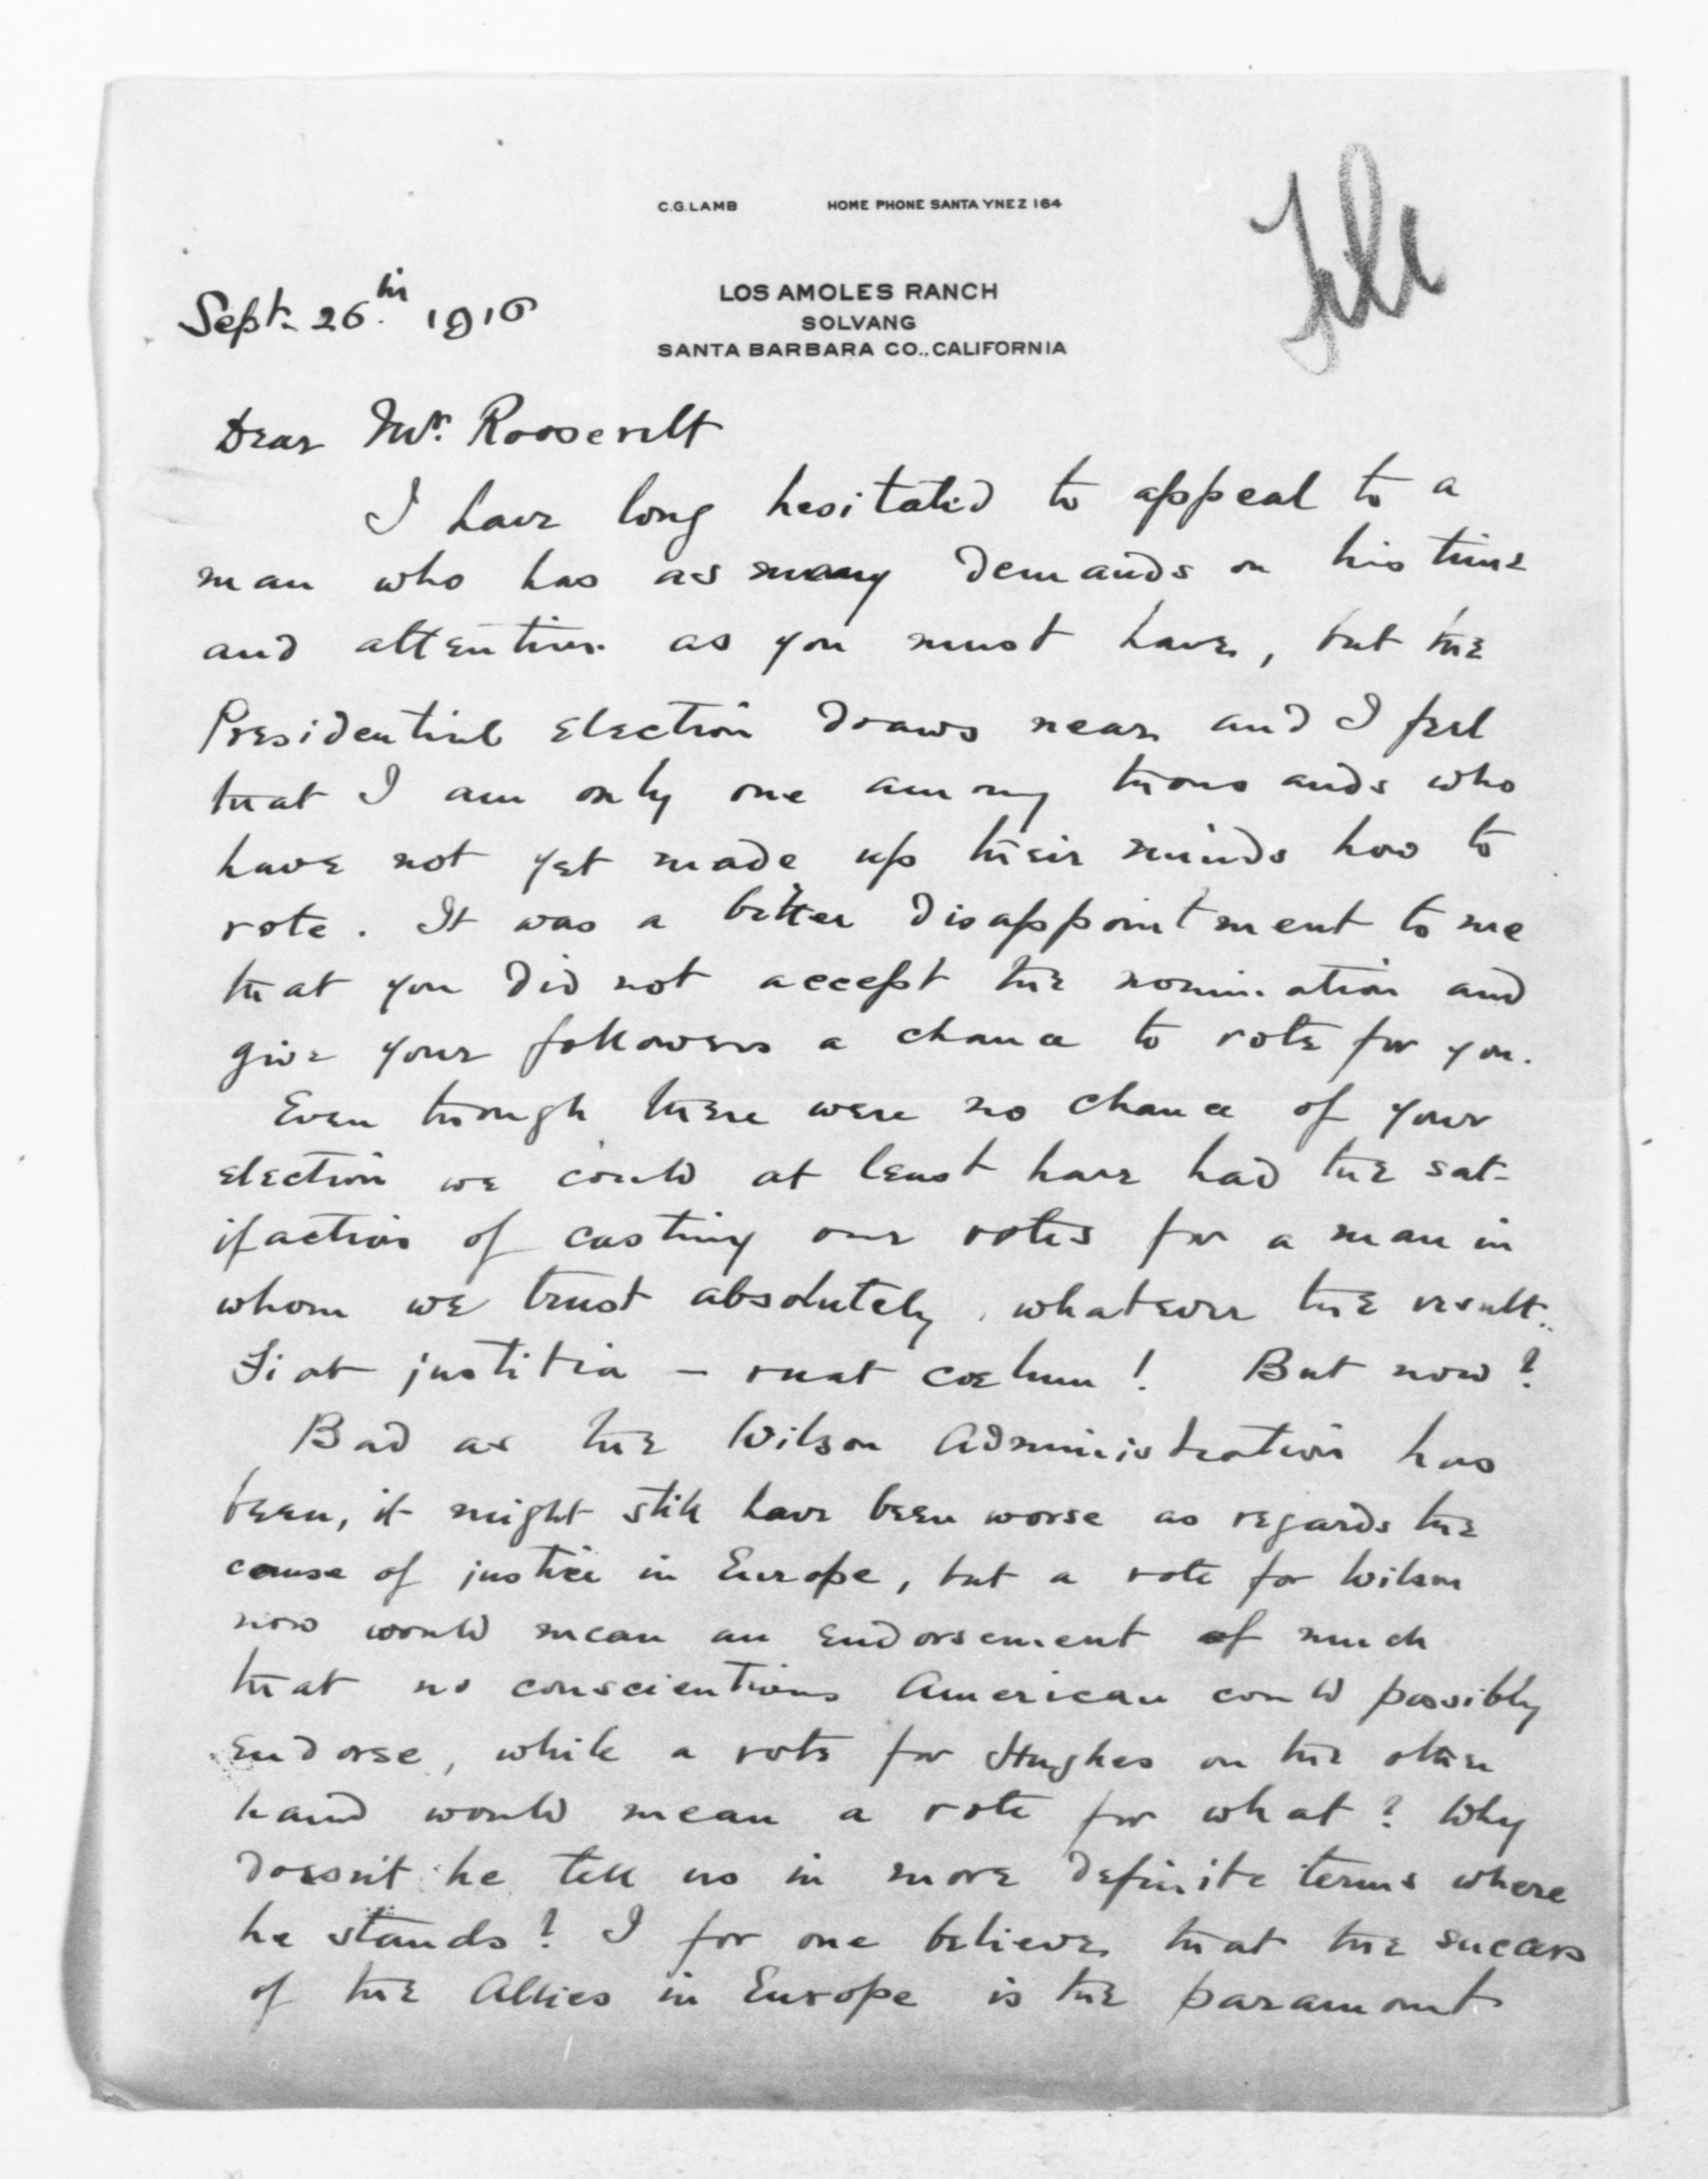 C.G.LAMB HOME PHONE SANTA YNEZ 164
File
LOS AMOLES RANCH
SOLVANG
SANTA BARBARA CO., CALIFORNIA
Sept. 26th 1916
Dear Mr. Roosevelt
I have long hesitated to appeal to a
man who has as many demands on his time
and attention as you must have, but the
Presidential election draws near and I feel
that I am only one among thousands who
have not yet made up their minds how to
vote. It was a bitter disappointment to me
that you did not accept the nomination and
give your followers a chance to vote for you.
Even though there were no chance of your
election we could at least have had the sat-
ifaction of casting our votes for a man in
whom we trust absolutely, whatever the result.
Fiat justitia – ruat coelum! But now?
Bad as the Wilson Administration has
been, it might still have been worse as regards the
cause of justice in Europe, but a vote for Wilson
now would mean an endorsement of much
that no conscientious American could possibly
endorse, while a vote for Hughes on the other
hand would mean a vote for what? Why
doesn't he tell us in more definite terms where
he stands? I for one believe that the success
of the Allies in Europe is the paramount